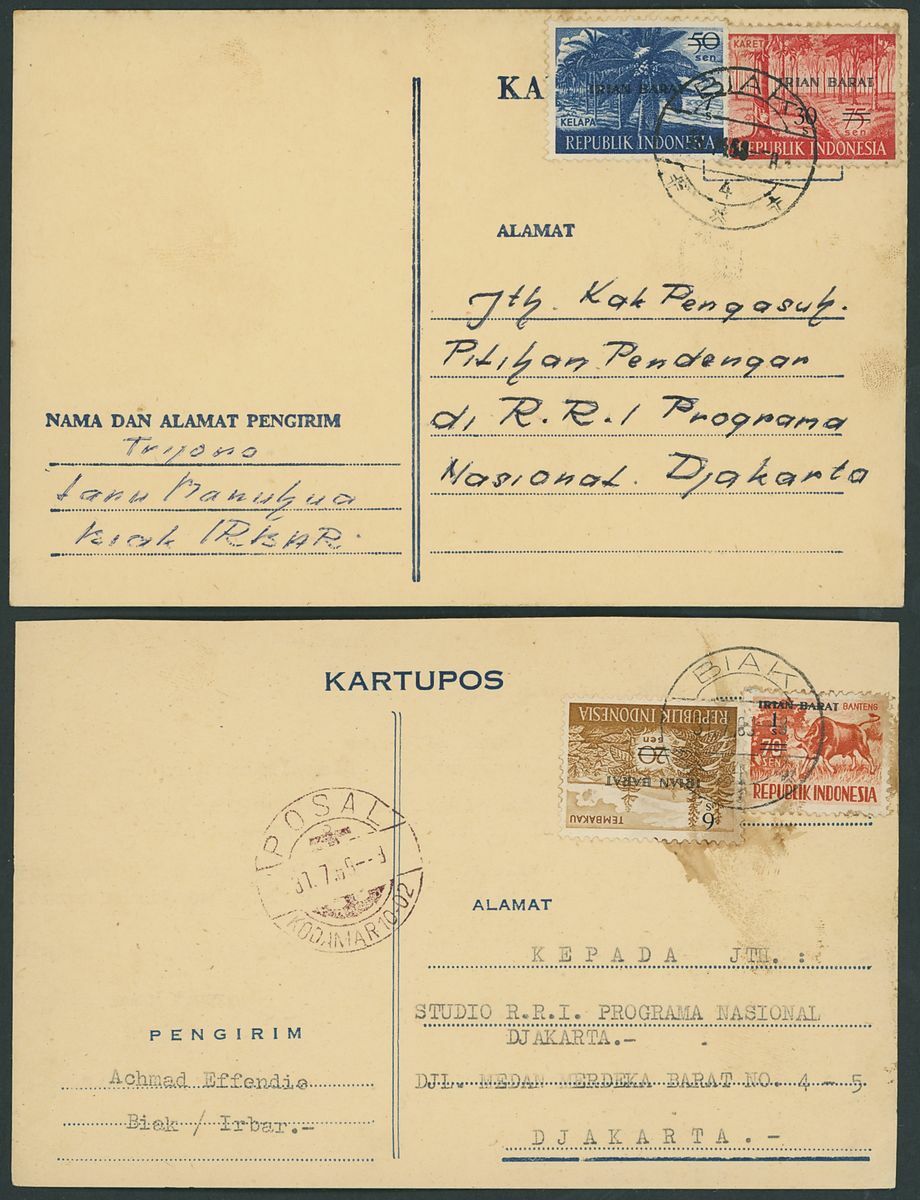 KA
50
sen
IRIAN BARAT
KELAPA
REPUBLIK INDONESIA
KARET
IRIAN BARAT
30
75
sen
REPUBLIK INDONESIA
BIAK
4
ALAMAT
Jth. Kak Pengasuh.
Pilihan Pendengar
di R.R.I Programa
Nasional. Djakarta
NAMA DAN ALAMAT PENGIRIM
Trijono
Lanu Manuhua
Biak IRBAR.
KARTUPOS
BIAK
REPUBLIK INDONESIA
20
sen
IRIAN BARAT
6
s
TEMBAKAU
IRIAN BARAT
BANTENG
1
s
70
SEN
REPUBLIK INDONESIA
POSAL
31.7.
KODAMAR 10-02
ALAMAT
KEPADA JTH.:
STUDIO R.R.I. PROGRAMA NASIONAL
DJAKARTA.-
DJL. MEDAN MERDEKA BARAT NO. 4 - 5
DJAKARTA.-
PENGIRIM
Achmad Effendie
Biak / Irbar.-